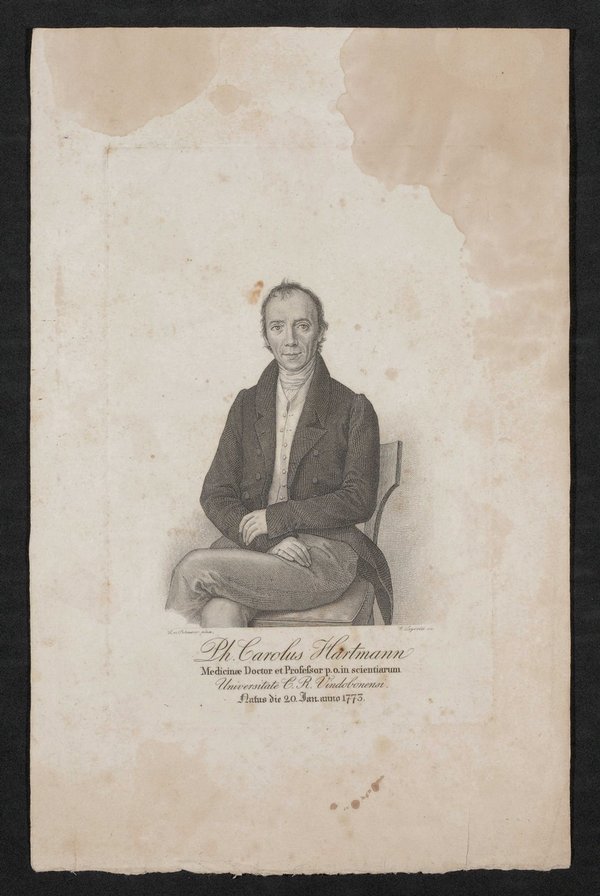 Ph. Carolus Hartmann
Medicinæ Doctor et Profeſsor p. o. in scientiarum
Universitate C. R. Vindobonensi.
Natus die 20. Jan. anno 1773.